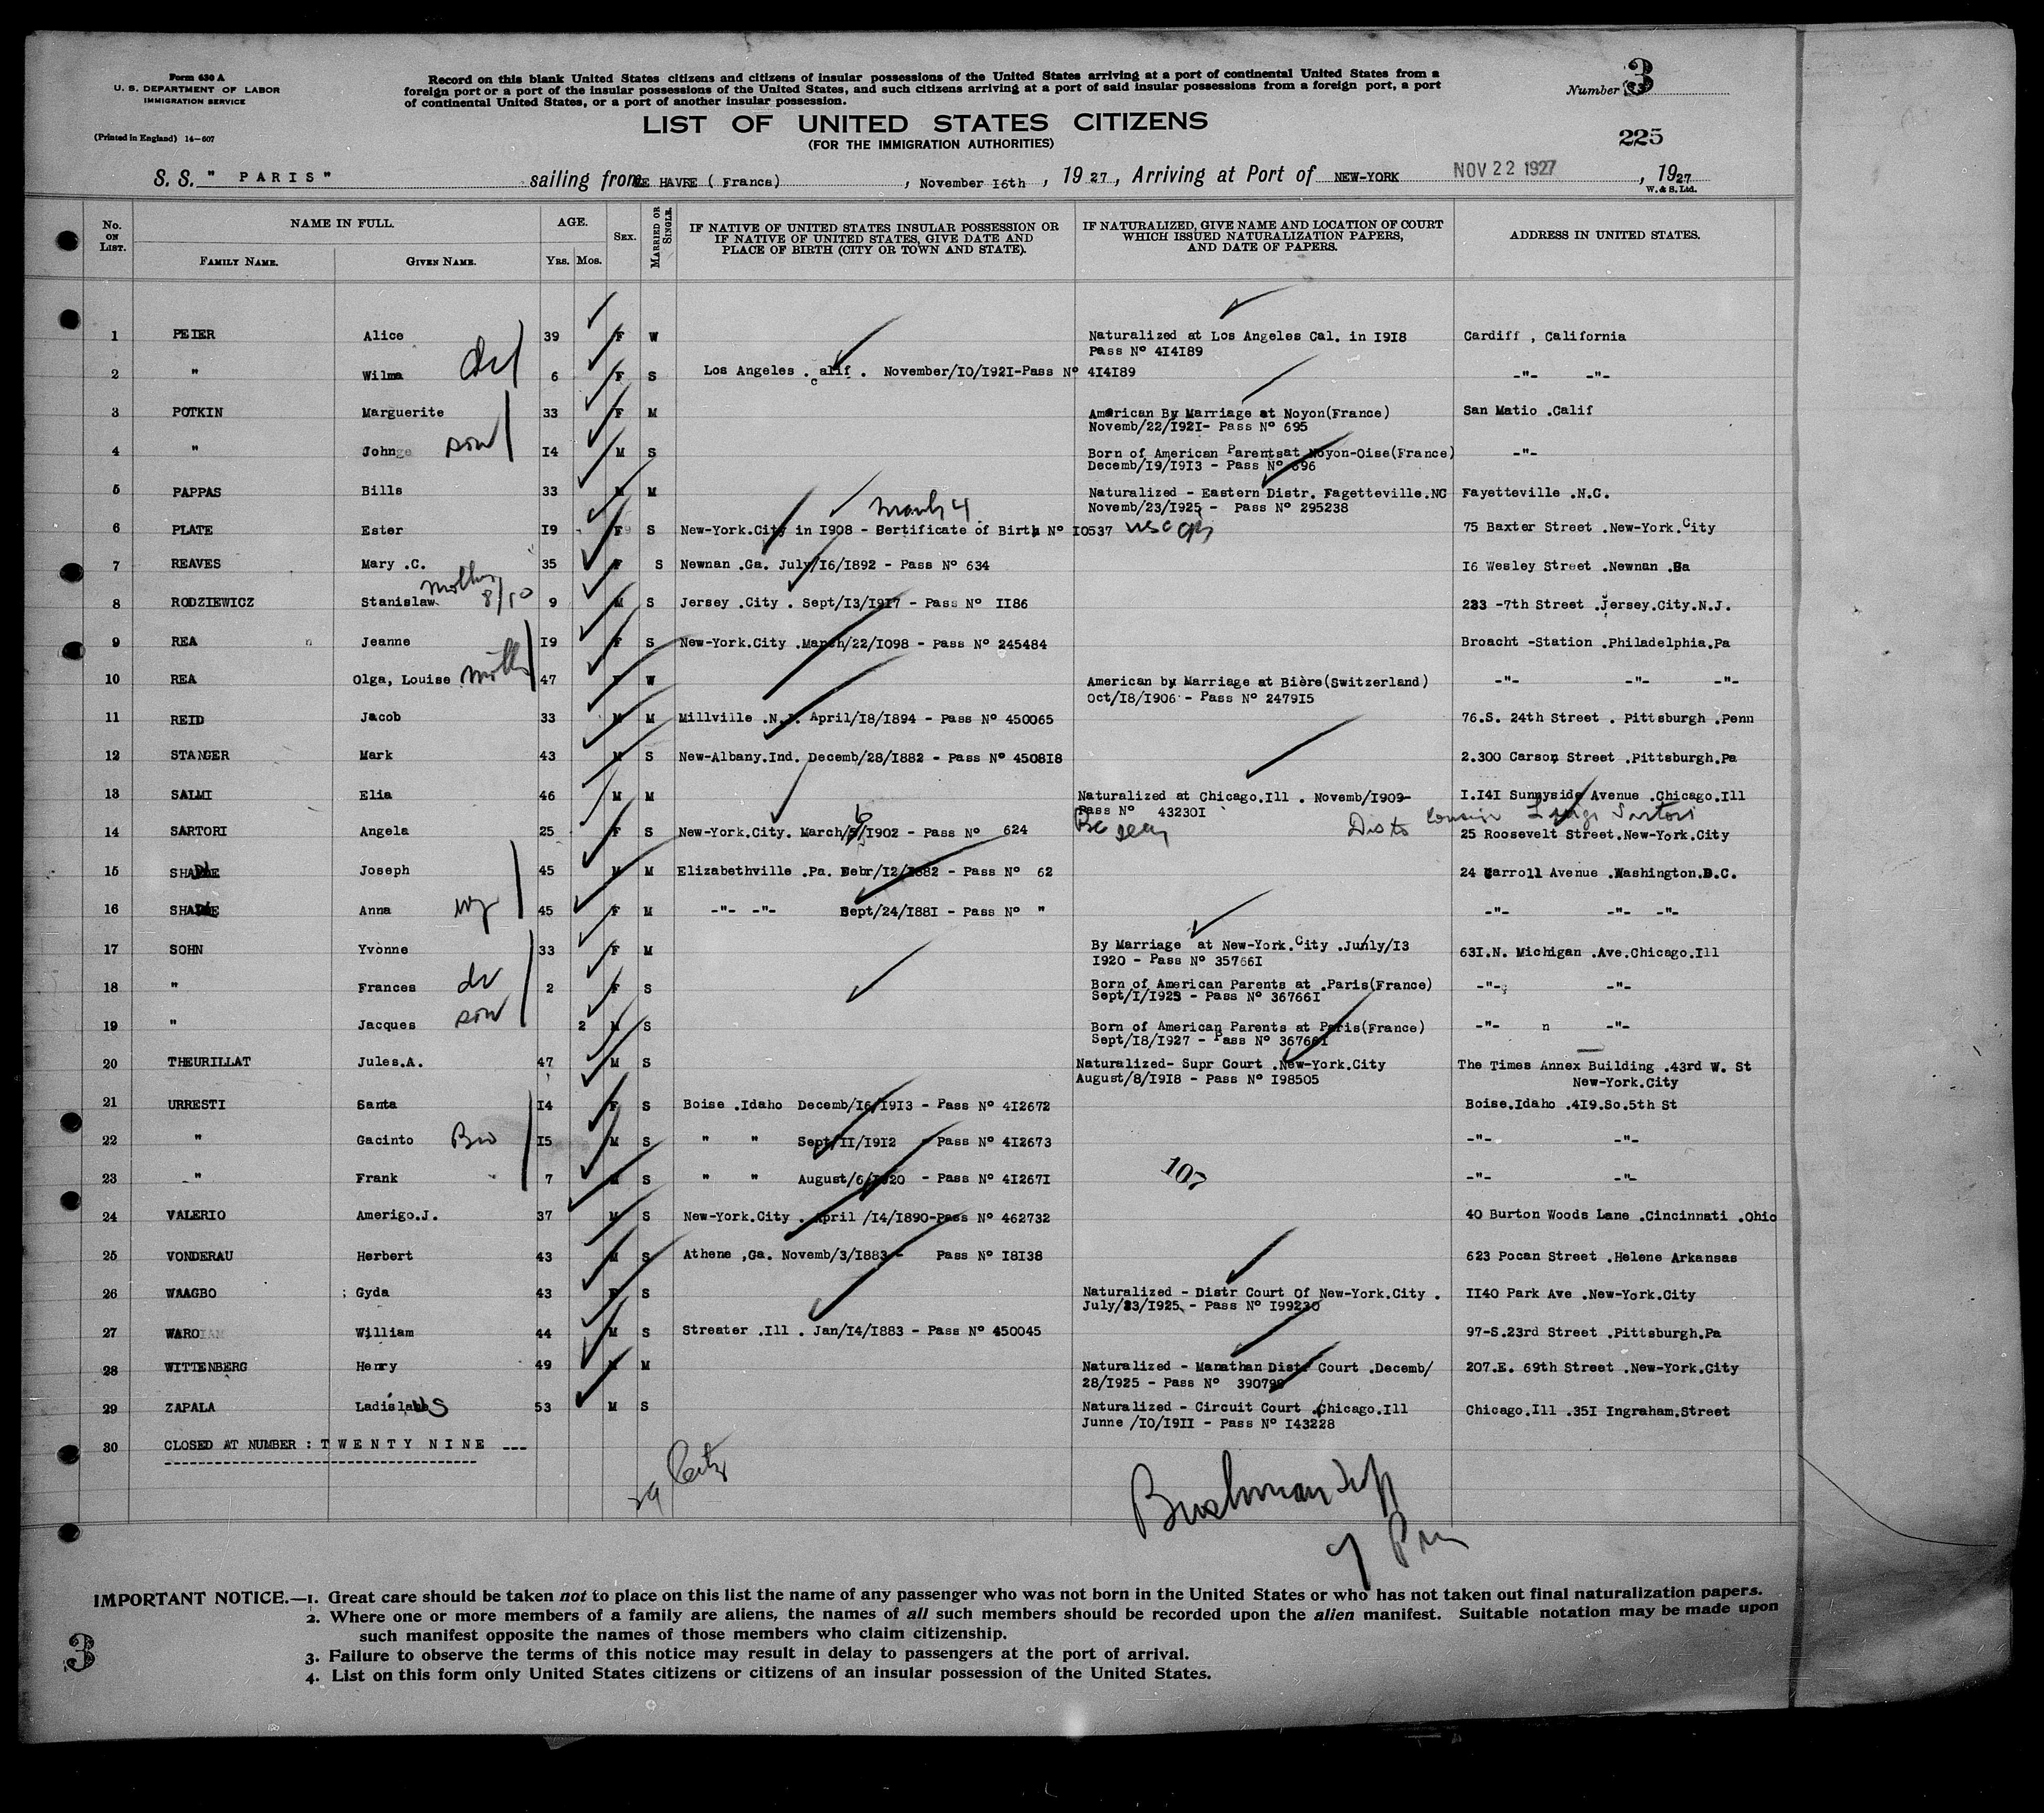 Form 630 A
U. S. DEPARTMENT OF LABOR
IMMIGRATION SERVICE
(Printed in England) 14—607
Record on this blank United States citizens and citizens of insular possessions of the United States arriving at a port of continental United States from a
foreign port or a port of the insular possessions of the United States, and such citizens arriving at a port of said insular possessions from a foreign port, a port
of continental United States, or a port of another insular possession.
Number 3
LIST OF UNITED STATES CITIZENS
(FOR THE IMMIGRATION AUTHORITIES)
225
S. S. " PARIS" sailing from LE HAVRE ( France) , November 16th , 1927 , Arriving at Port of NEW-YORK NOV 22 1927 , 1927
W. & S. Ltd.
No. ON LIST. NAME IN FULL. AGE. SEX. MARRIED OR SINGLE. IF NATIVE OF UNITED STATES INSULAR POSSESSION OR IF NATIVE OF UNITED STATES, GIVE DATE AND PLACE OF BIRTH (CITY OR TOWN AND STATE). IF NATURALIZED, GIVE NAME AND LOCATION OF COURT WHICH ISSUED NATURALIZATION PAPERS, AND DATE OF PAPERS. ADDRESS IN UNITED STATES.
FAMILY NAME. GIVEN NAME. YRS. MOS.
1 PEIER Alice 39 F W Naturalized at Los Angeles Cal. in 1918 Cardiff , California
Pass Nº 414189
2 " Wilma 6 F S Los Angeles . calif . November/10/1921-Pass Nº 414189 -"- -"-
3 POTKIN Marguerite 33 F M American By Marriage at Noyon(France) San Matio .Calif
Novemb/22/1921- Pass Nº 695
4 " John son 14 M S Born of American Parentsat Noyon-Oise(France) -"-
Decemb/19/1913 - Pass Nº 696
5 PAPPAS Bills 33 M M Naturalized - Eastern Distr. Fagetteville.NC Fayetteville .N.C.
Novemb/23/1925 - Pass Nº 295238
March 4
6 PLATE Ester 19 F S New-York.City in 1908 - Certificate of Birth Nº 10537 75 Baxter Street .New-York.City
7 REAVES Mary .C. 35 F S Newnan .Ga. July/16/1892 - Pass Nº 634 16 Wesley Street .Newnan .Ga
mother 8/10
8 RODZIEWICZ Stanislaw 9 M S Jersey .City . Sept/13/1917 - Pass Nº 1186 233 -7th Street .Jersey.City.N.J.
9 REA Jeanne 19 F S New-York.City .March/22/1098 - Pass Nº 245484 Broacht -Station .Philadelphia.Pa
10 REA Olga, Louise mother 47 F W American by Marriage at Bière(Switzerland) -"- -"- -"-
Oct/18/1906 - Pass Nº 247915
11 REID Jacob 33 M M Millville .N.J. April/18/1894 - Pass Nº 450065 76.S. 24th Street . Pittsburgh .Penn
12 STANGER Mark 43 M S New-Albany.Ind. Decemb/28/1882 - Pass Nº 450818 2.300 Carson Street .Pittsburgh.Pa
13 SALMI Elia 46 M M Naturalized at Chicago.Ill . Novemb/1909- 1.141 Sunnyside Avenue .Chicago.Ill
Pass Nº 432301
cousin Luigi Sartori
14 SARTORI Angela 25 F S New-York.City. March/6/1902 - Pass Nº 624 25 Roosevelt Street.New-York.City
15 SHADE Joseph 45 M M Elizabethville .Pa. Febr/12/1882 - Pass Nº 62 24 Carroll Avenue .Washington.D.C.
16 SHADE Anna 45 F M -"- -"- Sept/24/1881 - Pass Nº " -"- -"- -"-
17 SOHN Yvonne 33 F M By Marriage at New-York.City .Junly/13 631.N. Michigan .Ave.Chicago.Ill
1920 - Pass Nº 357661
18 " Frances 2 F S Born of American Parents at .Paris(France) -"- -"-
Sept/1/1925 - Pass Nº 367661
19 " Jacques son 2 M S Born of American Parents at Paris(France) -"- -"-
Sept/18/1927 - Pass Nº 367661
20 THEURILLAT Jules.A. 47 M S Naturalized- Supr Court .New-York.City The Times Annex Building .43rd W. St
August/8/1918 - Pass Nº 198505 New-York.City
21 URRESTI Santa 14 F S Boise .Idaho Decemb/16/1913 - Pass Nº 412672 Boise.Idaho .419.So.5th St
22 " Gacinto Bro 15 M S " " Sept/11/1912 - Pass Nº 412673 -"- -"-
23 " Frank 7 M S " " August/6/1920 - Pass Nº 412671 107 -"- -"-
24 VALERIO Amerigo.J. 37 M S New-York.City . April /14/1890-Pass Nº 462732 40 Burton Woods Lane .Cincinnati .Ohio
25 VONDERAU Herbert 43 M S Athene ,Ga. Novemb/3/1883 - Pass Nº 18138 623 Pocan Street .Helene Arkansas
26 WAAGBO Gyda 43 F S Naturalized - Distr Court Of New-York.City . 1140 Park Ave .New-York.City
July/23/1925 - Pass Nº 199230
27 WARO William 44 M S Streater .Ill . Jan/14/1883 - Pass Nº 450045 97-S.23rd Street .Pittsburgh.Pa
28 WITTENBERG Henry 49 M M Naturalized - Manathan Distr Court .Decemb/ 207.E. 69th Street .New-York.City
28/1925 - Pass Nº 390798
29 ZAPALA Ladislaus 53 M S Naturalized - Circuit Court Chicago.Ill Chicago.Ill .351 Ingraham.Street
Junne /10/1911 - Pass Nº 143228
30 CLOSED AT NUMBER : T W E N T Y N I N E ---
IMPORTANT NOTICE.—1. Great care should be taken not to place on this list the name of any passenger who was not born in the United States or who has not taken out final naturalization papers.
2. Where one or more members of a family are aliens, the names of all such members should be recorded upon the alien manifest. Suitable notation may be made upon
such manifest opposite the names of those members who claim citizenship.
3. Failure to observe the terms of this notice may result in delay to passengers at the port of arrival.
4. List on this form only United States citizens or citizens of an insular possession of the United States.
3